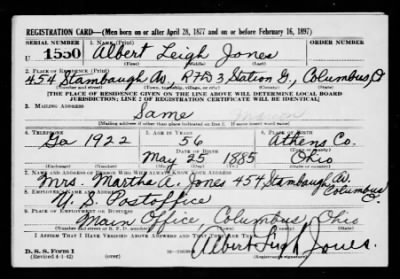 REGISTRATION CARD—(Men born on or after April 28, 1877 and on or before February 16, 1897)
SERIAL NUMBER 1. NAME (Print) ORDER NUMBER
U 1550 Albert Leigh Jones
(First) (Middle) (Last)
2. PLACE OF RESIDENCE (Print)
454 Stambaugh Av., RFD 3 Station G., Columbus, O
(Number and street) (Town, township, village, or city) (County) (State)
[THE PLACE OF RESIDENCE GIVEN ON THE LINE ABOVE WILL DETERMINE LOCAL BOARD
JURISDICTION; LINE 2 OF REGISTRATION CERTIFICATE WILL BE IDENTICAL]
3. MAILING ADDRESS
Same
[Mailing address if other than place indicated on line 2. If same insert word same]
4. TELEPHONE 5. AGE IN YEARS 6. PLACE OF BIRTH
Ga 1922 56 Athens Co.
DATE OF BIRTH
May 25 1885 Ohio
(Exchange) (Number) (Mo.) (Day) (Yr.) (State or country)
7. NAME AND ADDRESS OF PERSON WHO WILL ALWAYS KNOW YOUR ADDRESS
Mrs. Martha A. Jones 454 Stambaugh Av. Columbus O.
8. EMPLOYER'S NAME AND ADDRESS
U. S. Postoffice
9. PLACE OF EMPLOYMENT OR BUSINESS
Main Office Columbus Ohio
(Number and street or R. F. D. number) (Town) (County) (State)
I AFFIRM THAT I HAVE VERIFIED ABOVE ANSWERS AND THAT THEY ARE TRUE.
D. S. S. Form 1
(Revised 4-1-42)
Albert Leigh Jones.